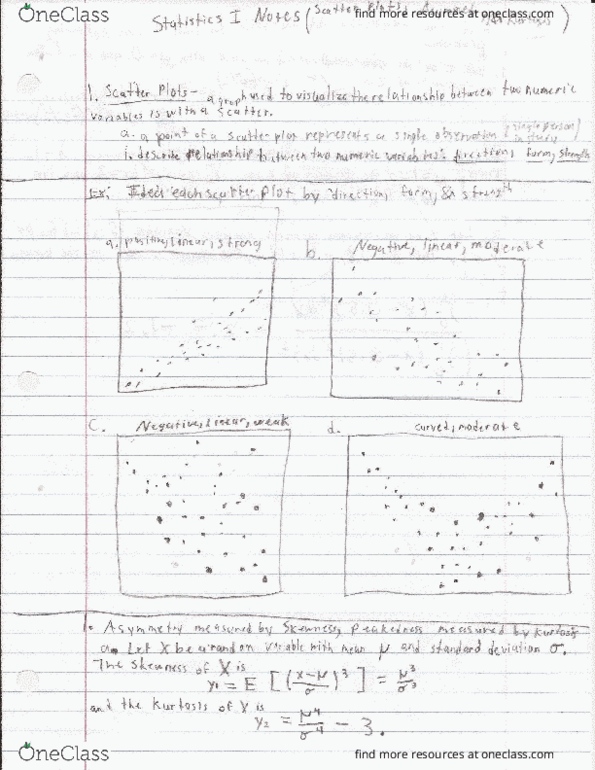 OneClass
find more resources at oneclass.com
Statistics I Notes (Scatter Plots,
1. Scatter Plots - a graph used to visualize the relationship between two numeric
variables is with a scatter.
a. a point of a scatter plot represents a single observation (single person
in study
i. describe relationship between two numeric variables: direction, form, strength
Ex: each scatter plot by direction, form, & strength
a. positive, linear, strong
b. Negative, linear, moderate
c. Negative, linear, weak
d. curved, moderate
Asymmetry measured by Skewness, peakedness measured by kurtosis
a. Let X be a random variable with mean μ and standard deviation σ.
The skewness of X is
γ1 = E [((x-μ)/σ)^3] = μ^3/σ^3
and the kurtosis of X is
γ2 = μ^4/σ^4 - 3.
OneClass
find more resources at oneclass.com